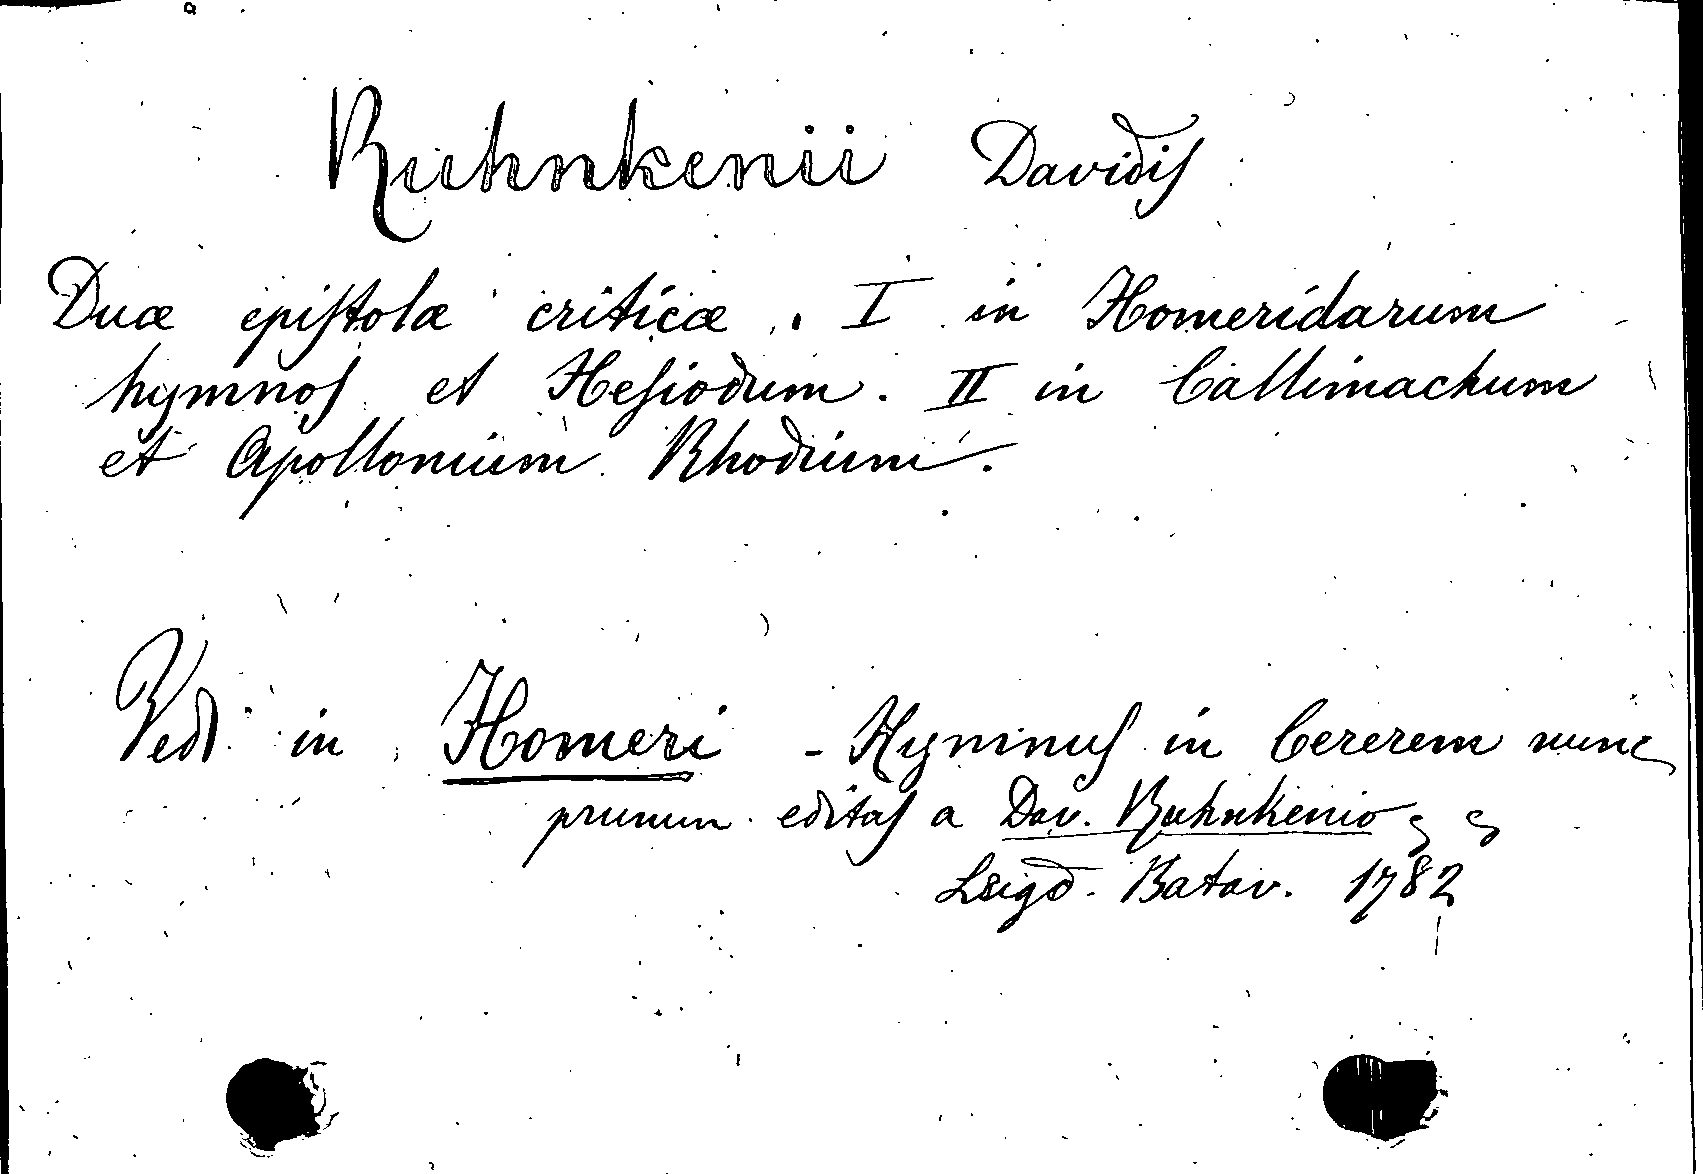 Ruhnkenii Davidis
Duæ epistolæ criticæ. I in Homeridarum
hymnos et Hesiodum. II in Callimachum
et Apollonium Rhodium.
Ved. in Homeri - Hymnus in Cererem nunc
primum editas a Dav. Ruhnkenio
Lugd. Batav. 1782